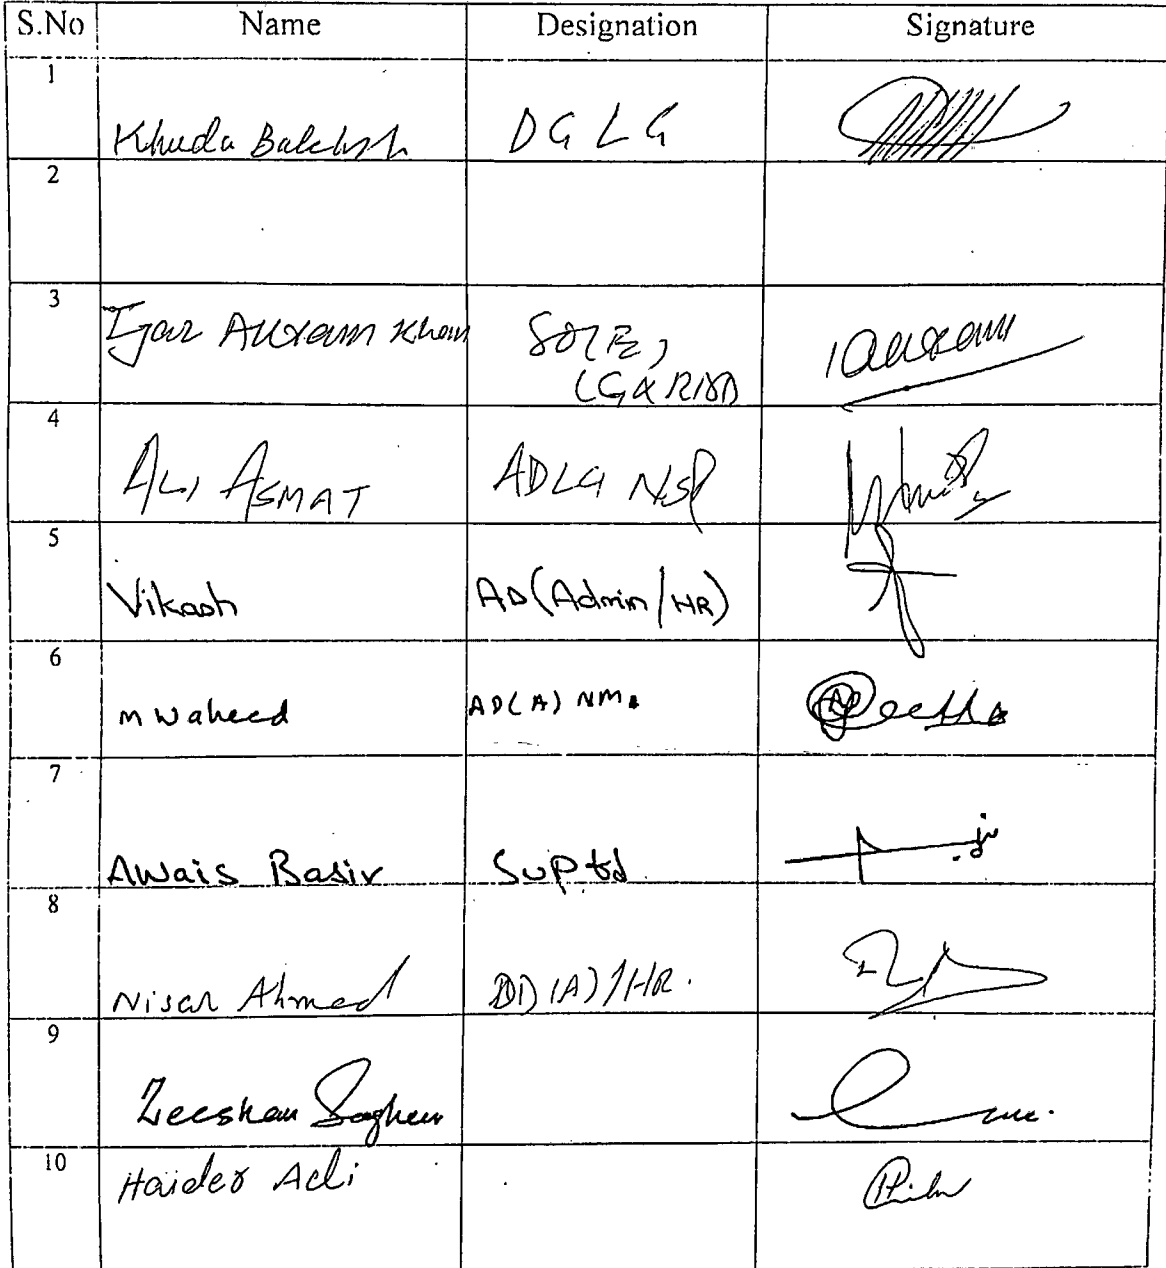 S.No Name Designation Signature
1
Khuda Bakhsh DG LG
2
3
Ijaz Akram Khan SO(E),
LG&RDD
4
ALI ASMAT ADLG NSP
5
Vikash AD(Admin/HR)
6
m waheed AD(A) NM.
7
Awais Basir Suptd
8
Nisar Ahmed DD(A)/HR.
9
Zeeshan
10
Haider Ali